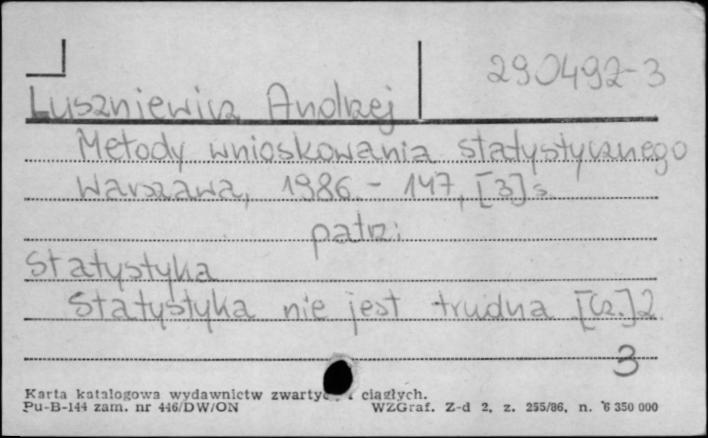 290492-3
Luszniewicz Andrzej
Metody wnioskowania statystycznego
Warszawa, 1986. - 147, [3] s.
patrz:
Statystyka
Statystyka nie jest trudna [Cz.] 2.
3
Karta katalogowa wydawnictw zwartyc i ciągłych.
Pu-B-144 zam. nr 446/DW/ON WZGraf. Z-d 2, z. 255/86, n. 6 350 000